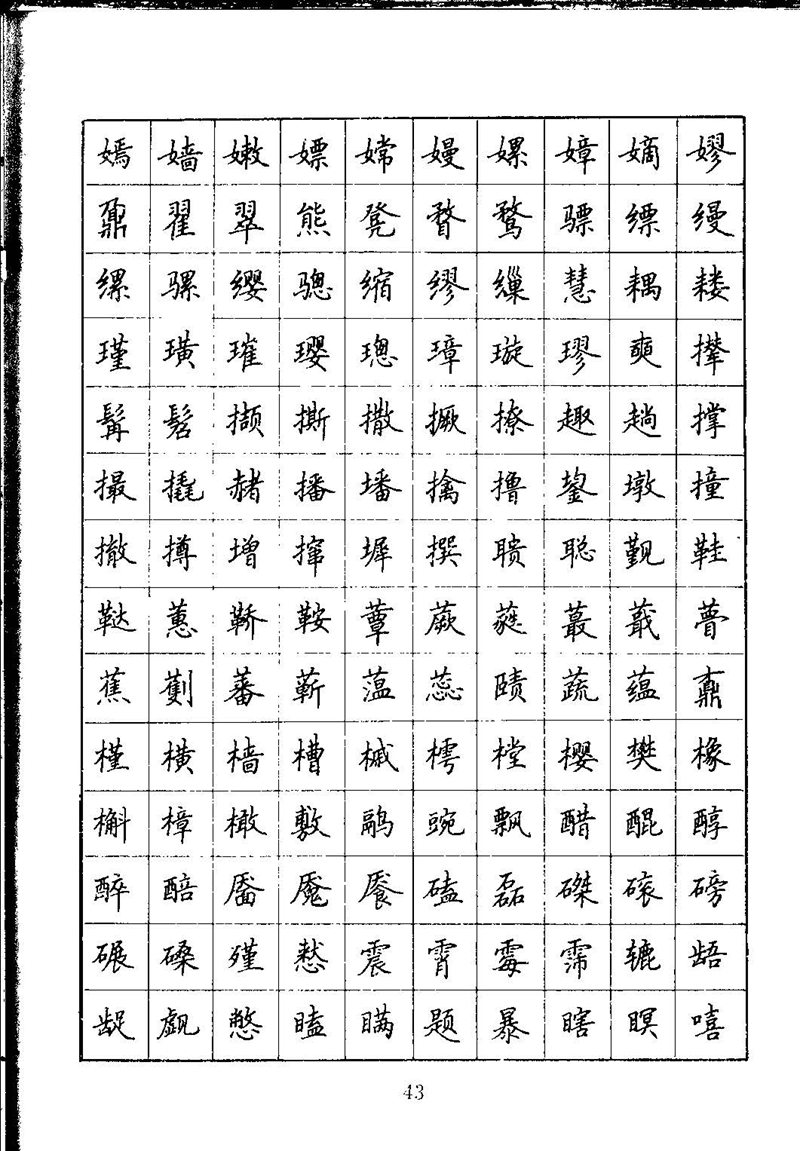 嫣嫱嫩嫖嫦嫚嫘嫜嫡嫪
鼐翟翠熊凳瞀鹜骠缥缦
缧骡缨骢缩缪缫慧耦耧
瑾璜璀璎璁璋璇璆奭撵
髯髫撷撕撒撅撩趣趟撑
撮撬赭播墦擒撸鋆墩撞
撤撙增撺墀撰聩聪觐鞋
鞑蕙鞒鞍蕈蕨蕤蕞蕺瞢
蕉劐蕃蕲蕰蕊赜蔬蕴鼒
槿横樯槽槭樗樘樱樊橡
槲樟橄敷鹝豌飘醋醌醇
醉醅靥魇餍磕磊磔磙磅
碾磉殣慭震霄霉霈辘龉
龊觑憋瞌瞒题暴瞎瞑嘻
43